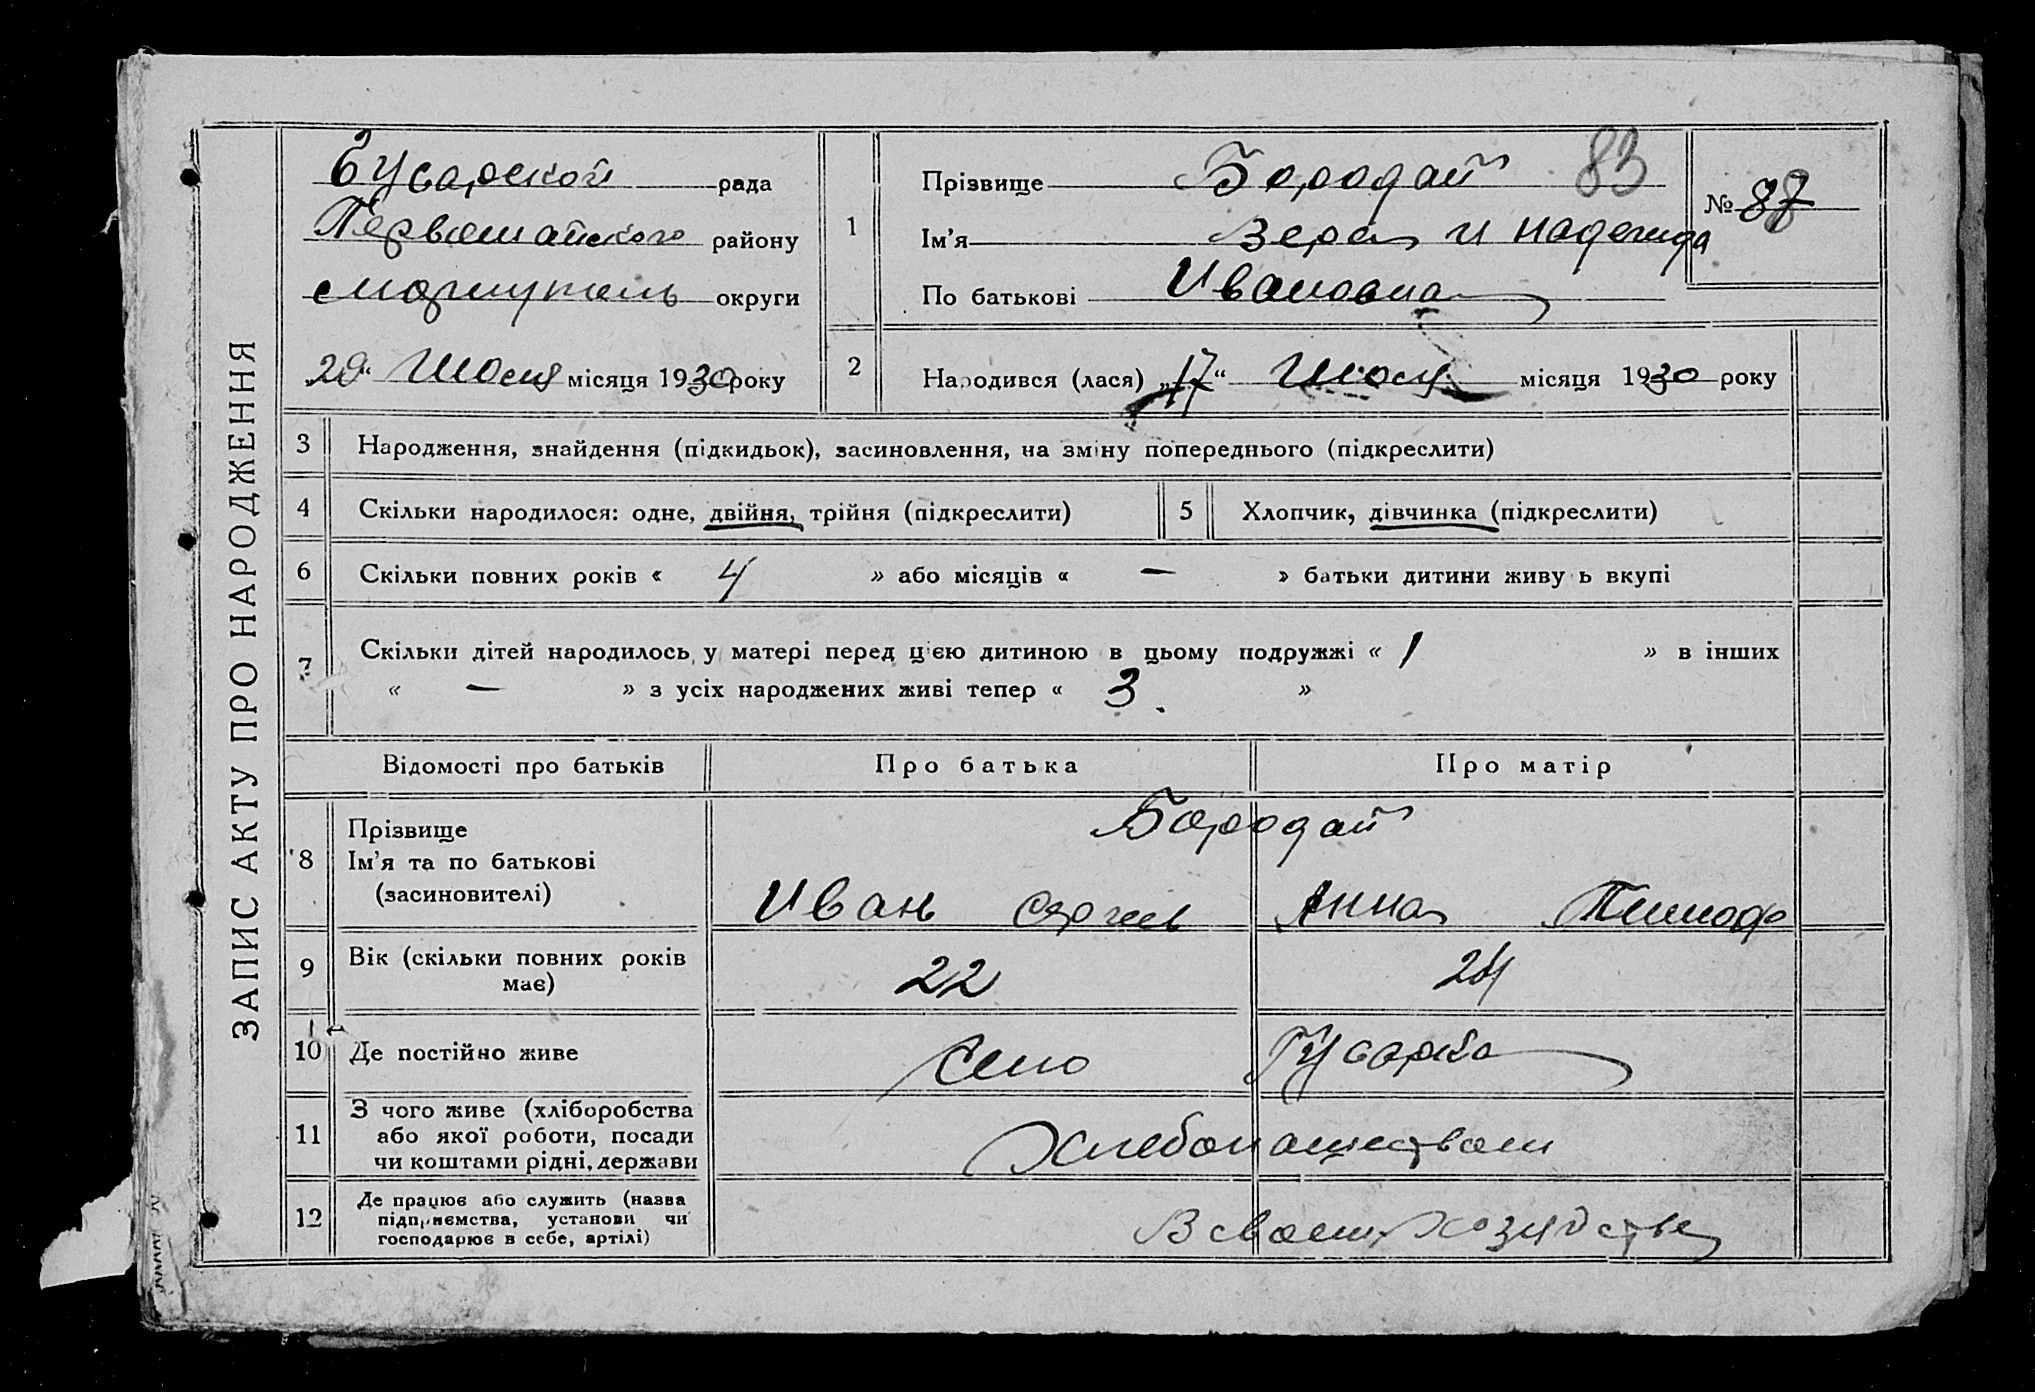 ЗАПИС АКТУ ПРО НАРОДЖЕННЯ
Гусарской рада
Первомайского району
Мариуполь округи
„20“ Июля місяця 1930 року
1
Прізвище Бородай 83
Ім’я Вера и Надежда
По батькові Ивановна
№ 87
2 Народився (лася) „17“ Июля місяця 1930 року
3 Народження, знайдення (підкидьок), засиновлення, на зміну попереднього (підкреслити)
4 Скільки народилося: одне, двійня, трійня (підкреслити) 5 Хлопчик, дівчинка (підкреслити)
6 Скільки повних років « 4 » або місяців « — » батьки дитини живуть вкупі
7 Скільки дітей народилось у матері перед цією дитиною в цьому подружжі « 1 » в інших
« — » з усіх народжених живі тепер « 3 »
Відомості про батьків Про батька Про матір
8 Прізвище Бородай
Ім’я та по батькові
(засиновителі) Иван Сергеев Анна Тимоф
9 Вік (скільки повних років має) 22 24
10 Де постійно живе Село Гусарка
11 З чого живе (хліборобства
або якої роботи, посади
чи коштами рідні, держави Хлебопашеством
12 Де працює або служить (назва
підприємства, установи чи
господарює в себе, артілі) В своем хозяйстве